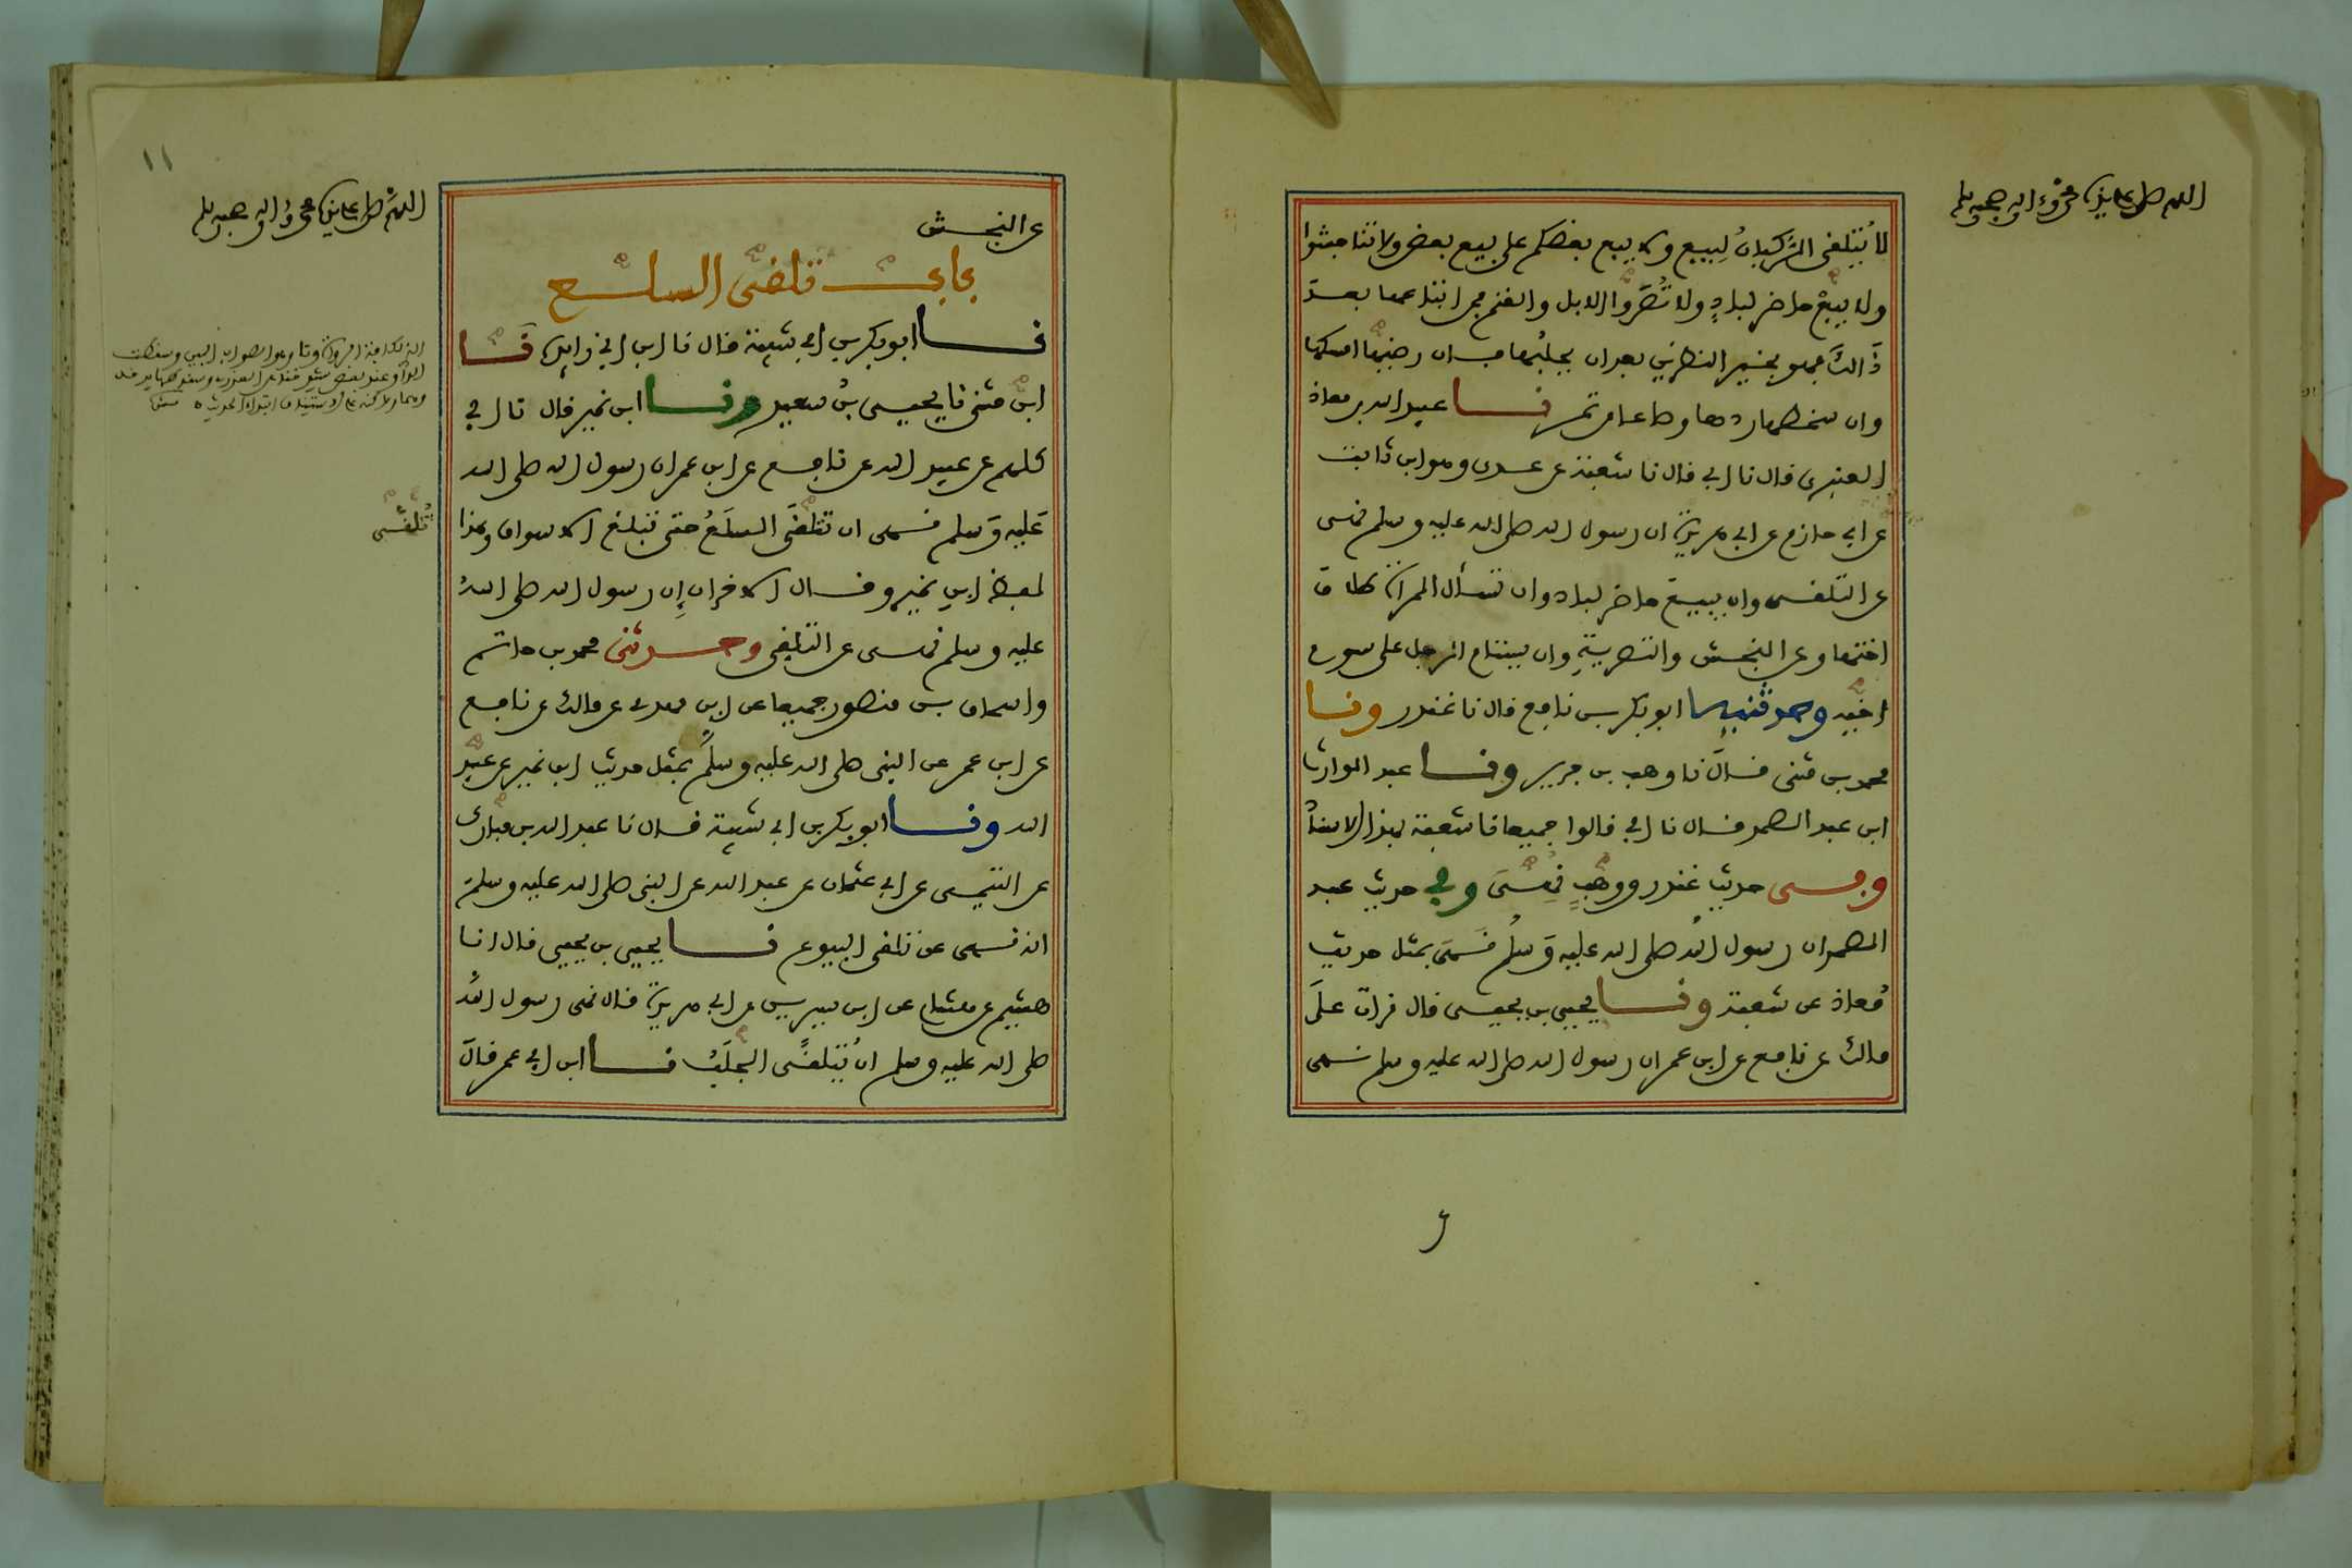 اللهم صل على سيدنا محمد وءاله وصحبه وسلم
لا يُتلقى الركبان لِبيع ولا يبع بعضكم على بيع بعض ولا تناجشوا
ولا يبعْ حاضر لبادٍ ولا تُصَرُّوا الابل والغنم فمن ابتاعها بعد
ذَالكَ فهو بخير النظرين بعد ان يحلبُها فان رضيها امسكها
وان سخطها ردها وصاعا من تمر نا عبيد الله بن معاذ
العنبرى قال نا ابي قال نا شعبة عن عدى وهو ابن ثابت
عن ابي حازم عن ابي هريرة ان رسول الله صلى الله عليه وسلم نهى
عن التلقى وان يبيع حاضر لباد وان تسأل المرأة طلاق
اختها وعن النجش والتصرية وان يستام الرجل على سوم
اخيه وحدثنيه ابو بكر بن نافع قال نا غندر ونا
محمد بن مثنى قال نا وهب بن جرير ونا عبد الوارث
ابن عبد الصمد قال نا ابي قالوا جميعا نا شعبة بهذا الاسناد
وفى حديث غندر ووهبٍ نُهِىَ وفي حديث عبد
الصمد ان رسول الله صلى الله عليه وَسلم نَهَى بمثل حديث
مُعاذ عن شعبة ونا يحيى بن يحيى قال قرات علَى
مالك عن نافع عن ابن عمر ان رسول الله صلى الله عليه وسلم نهى
١١
اللهم صل على سيدنا محمد وءاله وصحبه وسلم
عن النجش
باب تلقى السلع
نا ابو بكر بن ابي شيبة قال نا ابن ابي زايدة نَا
ابن مثنى نا يحيى بنُ سعيد ونا ابن نمير قال نا ابي
كلهم عن عبيد الله عن نافع عن ابن عمر ان رسول الله صلى الله
عَليه وَسلم نهى ان تتلقَّى السلَعُ حتى تبلغ الاسواق وهذا
لفظ ابن نمير وقال الاخران إِن رسول الله صلى اللهُ
عليه وسلم نهى عن التلقى وحدثنى محمد بن حاتم
واسحاق بن منصور جميعا عن ابن مهدى عن مالك عن نافع
عن ابن عمر عن النبى صلى الله عليه وسلم بمثل حديث ابن نمير عن عبيد
الله ونا ابو بكر بن ابي شيبة قال نا عبد الله بن مبارك
عن التيمى عن ابي عثمان عن عبد الله عن النبى صلى الله عليه وسلم
انه نهى عن تلقى البيوع نا يحيى بن يحيى قال انا
هشيم عن هشام عن ابن سيرين عن ابي هريرة قال نهى رسول الله
صلى الله عليه وسلم ان يُتلقَّى الجلَبُ نا ابن ابي عمر قالَ
يُتلقى